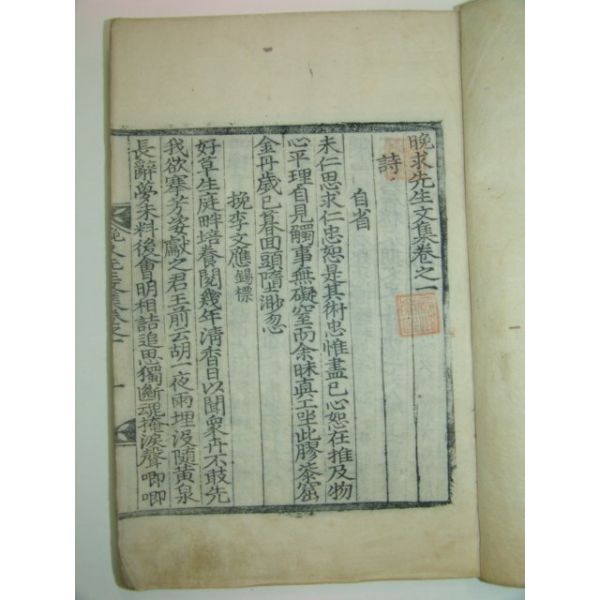 晚求先生文集卷之一
詩
自省
未仁思求仁忠恕是其術忠惟盡己心恕在推及物
心平理自見觸事無礙窒而余昧眞工坐此膠漆窟
金丹歲已暮回頭隋土渺忽
挽李文應錫標
好草生庭畔培養閱幾年清香日以聞衆卉不敢先
我欲搴芳姿獻之君王前云胡一夜雨埋沒隨黃泉
長辭夢未料後會明相詰追思獨斷魂掩淚聲喞喞